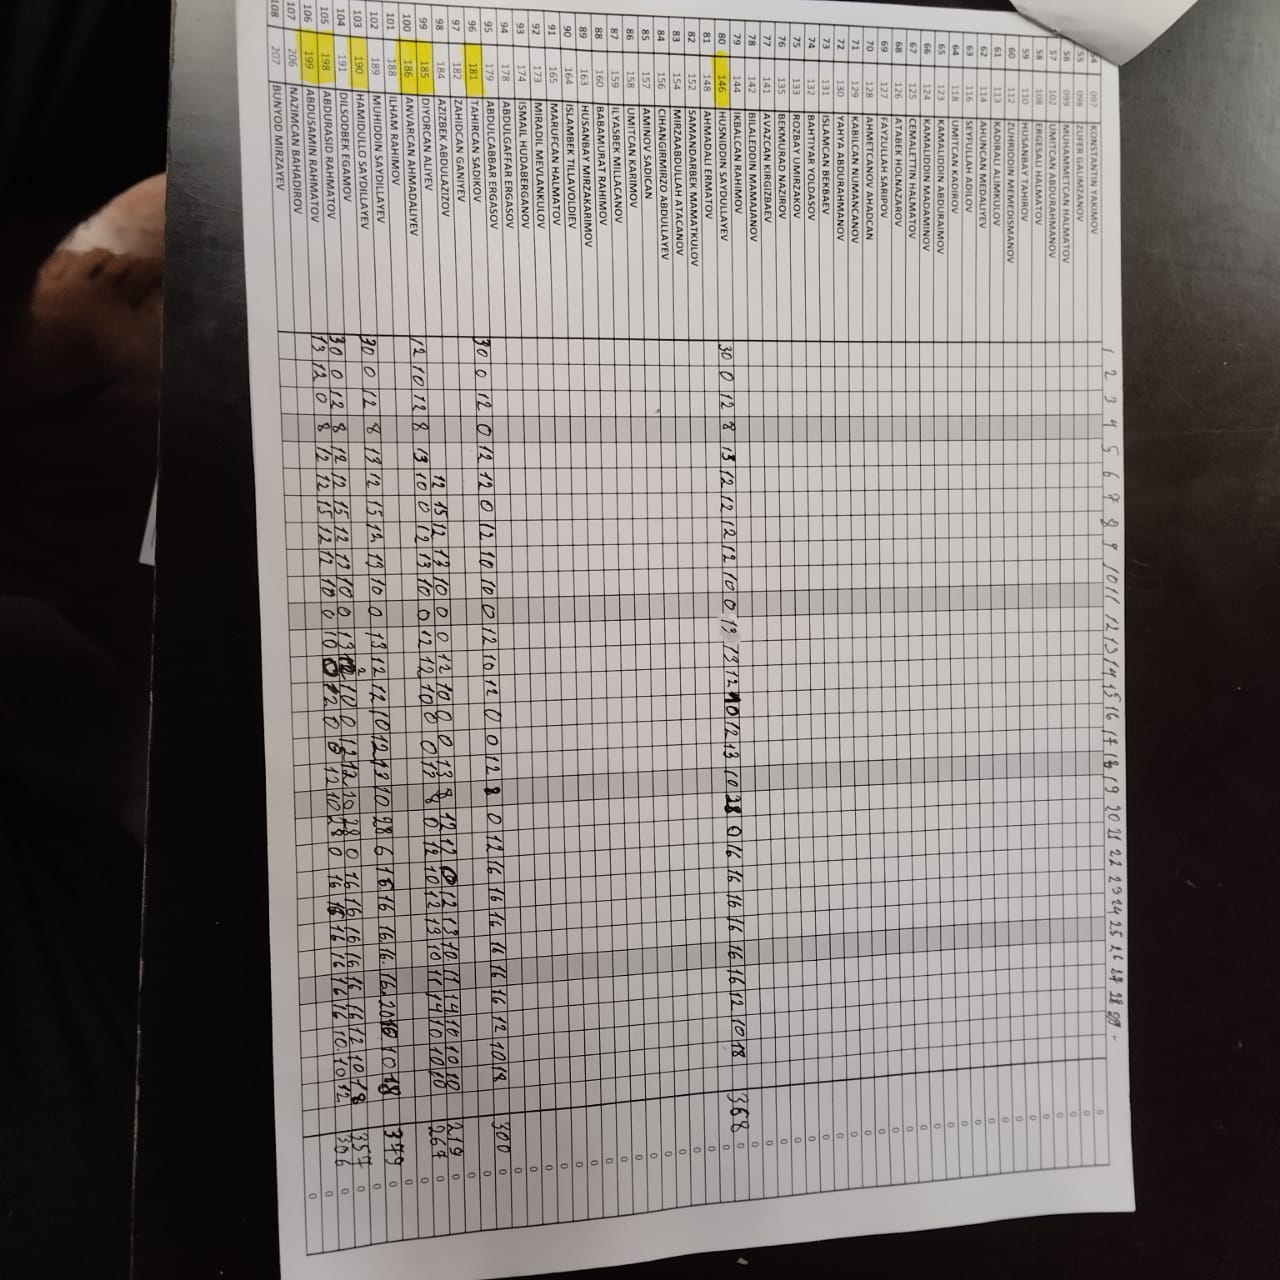 1 2 3 4 5 6 7 8 9 10 11 12 13 14 15 16 17 18 19 20 21 22 23 24 25 26 27 28 29 -
54 097 KONSTANTIN YAKIMOV 0
55 098 ZUFER GALIMZANOV 0
56 099 MUHAMMETCAN HALMATOV 0
57 102 UMITCAN ABDURAHMANOV 0
58 108 ERGESALI HALMATOV 0
59 110 HUSANBAY TAHIROV 0
60 112 ZUHRIDDIN MEMEDISMANOV 0
61 113 KADIRALI ALIMKULOV 0
62 114 AHUNCAN MEDALIYEV 0
63 116 SEYFULLAH ADILOV 0
64 118 UMITCAN KADIROV 0
65 123 KAMALIDDIN ABDURAIMOV 0
66 124 KAMALIDDIN MADAMINOV 0
67 125 CEMALETTIN HALMATOV 0
68 126 ATABEK HOLNAZAROV 0
69 127 FAYZULLAH SARIPOV 0
70 128 AHMETCANOV AHADCAN 0
71 129 KABILCAN NUMANCANOV 0
72 130 YAHYA ABDURAHMANOV 0
73 131 ISLAMCAN BEKBAEV 0
74 132 BAHTIYAR YOLDASOV 0
75 133 ROZBAY UMIRZAKOV 0
76 135 BEKMURAD NAZIROV 0
77 141 AVAZCAN KIRGIZBAEV 0
78 142 BILALEDDIN MAMAJANOV 0
79 144 IKBALCAN RAHIMOV 0
80 146 HUSNIDDIN SAYDULLAYEV 30 0 12 8 13 12 12 12 12 10 0 13 13 12 10 12 13 10 28 0 16 16 16 16 16 16 12 10 18 368 0
81 148 AHMADALI ERMATOV 0
82 152 SAMANDARBEK MAMATKULOV 0
83 154 MIRZAABDULLAH ATACANOV 0
84 156 CIHANGIRMIRZO ABDULLAYEV 0
85 157 AMINOV SADICAN 0
86 158 UMITCAN KARIMOV 0
87 159 ILYASBEK MILLACANOV 0
88 160 BABAMURAT RAHIMOV 0
89 163 HUSANBAY MIRZAKARIMOV 0
90 164 ISLAMBEK TILLAVOLDIEV 0
91 165 MARUFCAN HALMATOV 0
92 173 MIRADIL MEVLANKULOV 0
93 174 ISMAIL HUDABERGANOV 0
94 178 ABDULGAFFAR ERGASOV 0
95 179 ABDULCABBAR ERGASOV 0
96 181 TAHIRCAN SADIKOV 30 0 12 0 12 12 0 12 10 10 0 12 10 12 0 0 12 8 0 12 16 16 16 16 16 16 12 10 18 300 0
97 182 ZAHIDCAN GANIYEV 0
98 184 AZIZBEK ABDULAZIZOV 0
99 185 DIYORCAN ALIYEV 12 15 12 13 10 0 0 12 10 0 0 13 8 12 12 0 12 13 10 11 14 10 10 10 219 0
100 186 ANVARCAN AHMADALIYEV 12 10 12 8 13 10 0 12 13 10 0 12 12 10 0 0 13 8 0 12 10 12 13 10 11 14 10 10 10 267 0
101 188 ILHAM RAHIMOV 0
102 189 MUHIDDIN SAYDILLAYEV 0
103 190 HAMIDULLO SAYDILLAYEV 30 0 12 8 13 12 15 12 13 10 0 13 12 12 10 12 13 10 28 6 16 16 16. 16. 16. 20 10 10 18 379 0
104 191 DILSODBEK EGAMOV 0
105 198 ABDURASID RAHMATOV 30 0 12 8 12 12 15 12 12 10 0 13 12 10 0 12 12 10 28 0 16 16 16 16 16 16 12 10 18 357 0
106 199 ABDUSAMIN RAHMATOV 13 12 0 8 12 12 15 12 12 10 0 10 0 12 0 0 12 10 28 0 16 16 16 16 16 16 10 10 12 306 0
107 206 NAZIMCAN BAHADIROV 0
108 207 BUNYOD MIRZAYEV 0